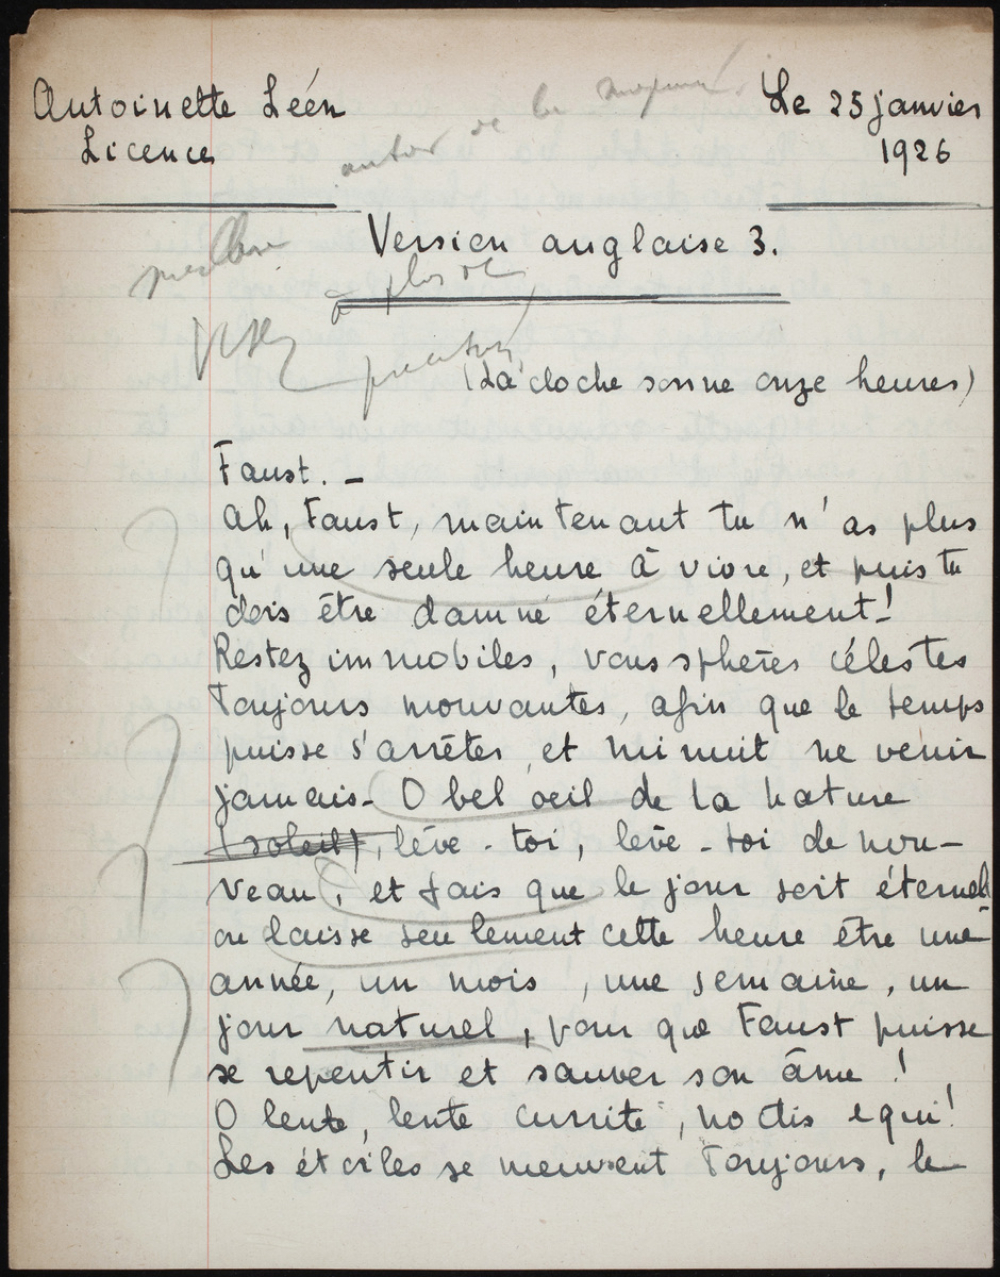 Antoinette Léon
Le 25 janvier
Licence
1926
autour de la moyenne.
Version anglaise 3.
meilleur
à plus de
Visez
(La cloche sonne onze heures)
Faust. -
Ah, Faust, maintenant tu n'as plus
qu'une seule heure à vivre, et puis tu
dois être damné éternellement!
Restez immobiles, vous sphères célestes
Toujours mouvantes, afin que le temps
puisse s'arrêter, et minuit ne venir
jamais - O bel oeil de la nature
(soleil), lève-toi, lève-toi de nou-
veau, et fais que le jour soit éternel
ou laisse seulement cette heure être une
année, un mois, une semaine, un
jour naturel, pour que Faust puisse
se repentir et sauver son âme !
O lente, lente currite, noctis equi!
Les étoiles se meuvent Toujours, le